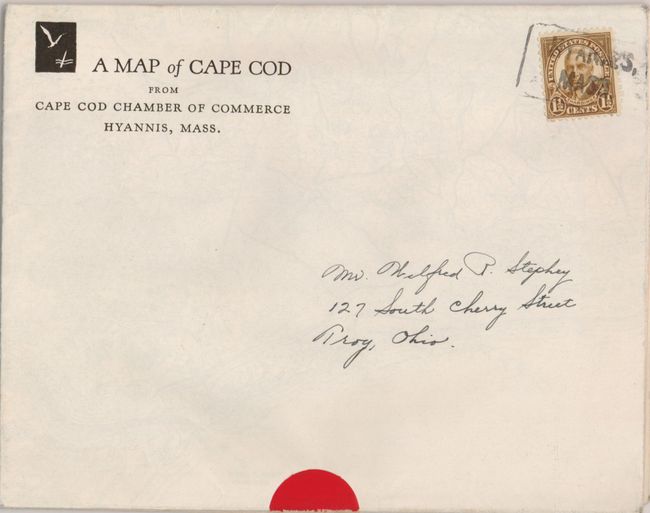 A MAP of CAPE COD
FROM
CAPE COD CHAMBER OF COMMERCE
HYANNIS, MASS.
UNITED STATES POSTAGE
1½ 1½
CENTS
MASS.
Mr. Wilfred P. Stephey
127 South Cherry Street
Troy, Ohio.